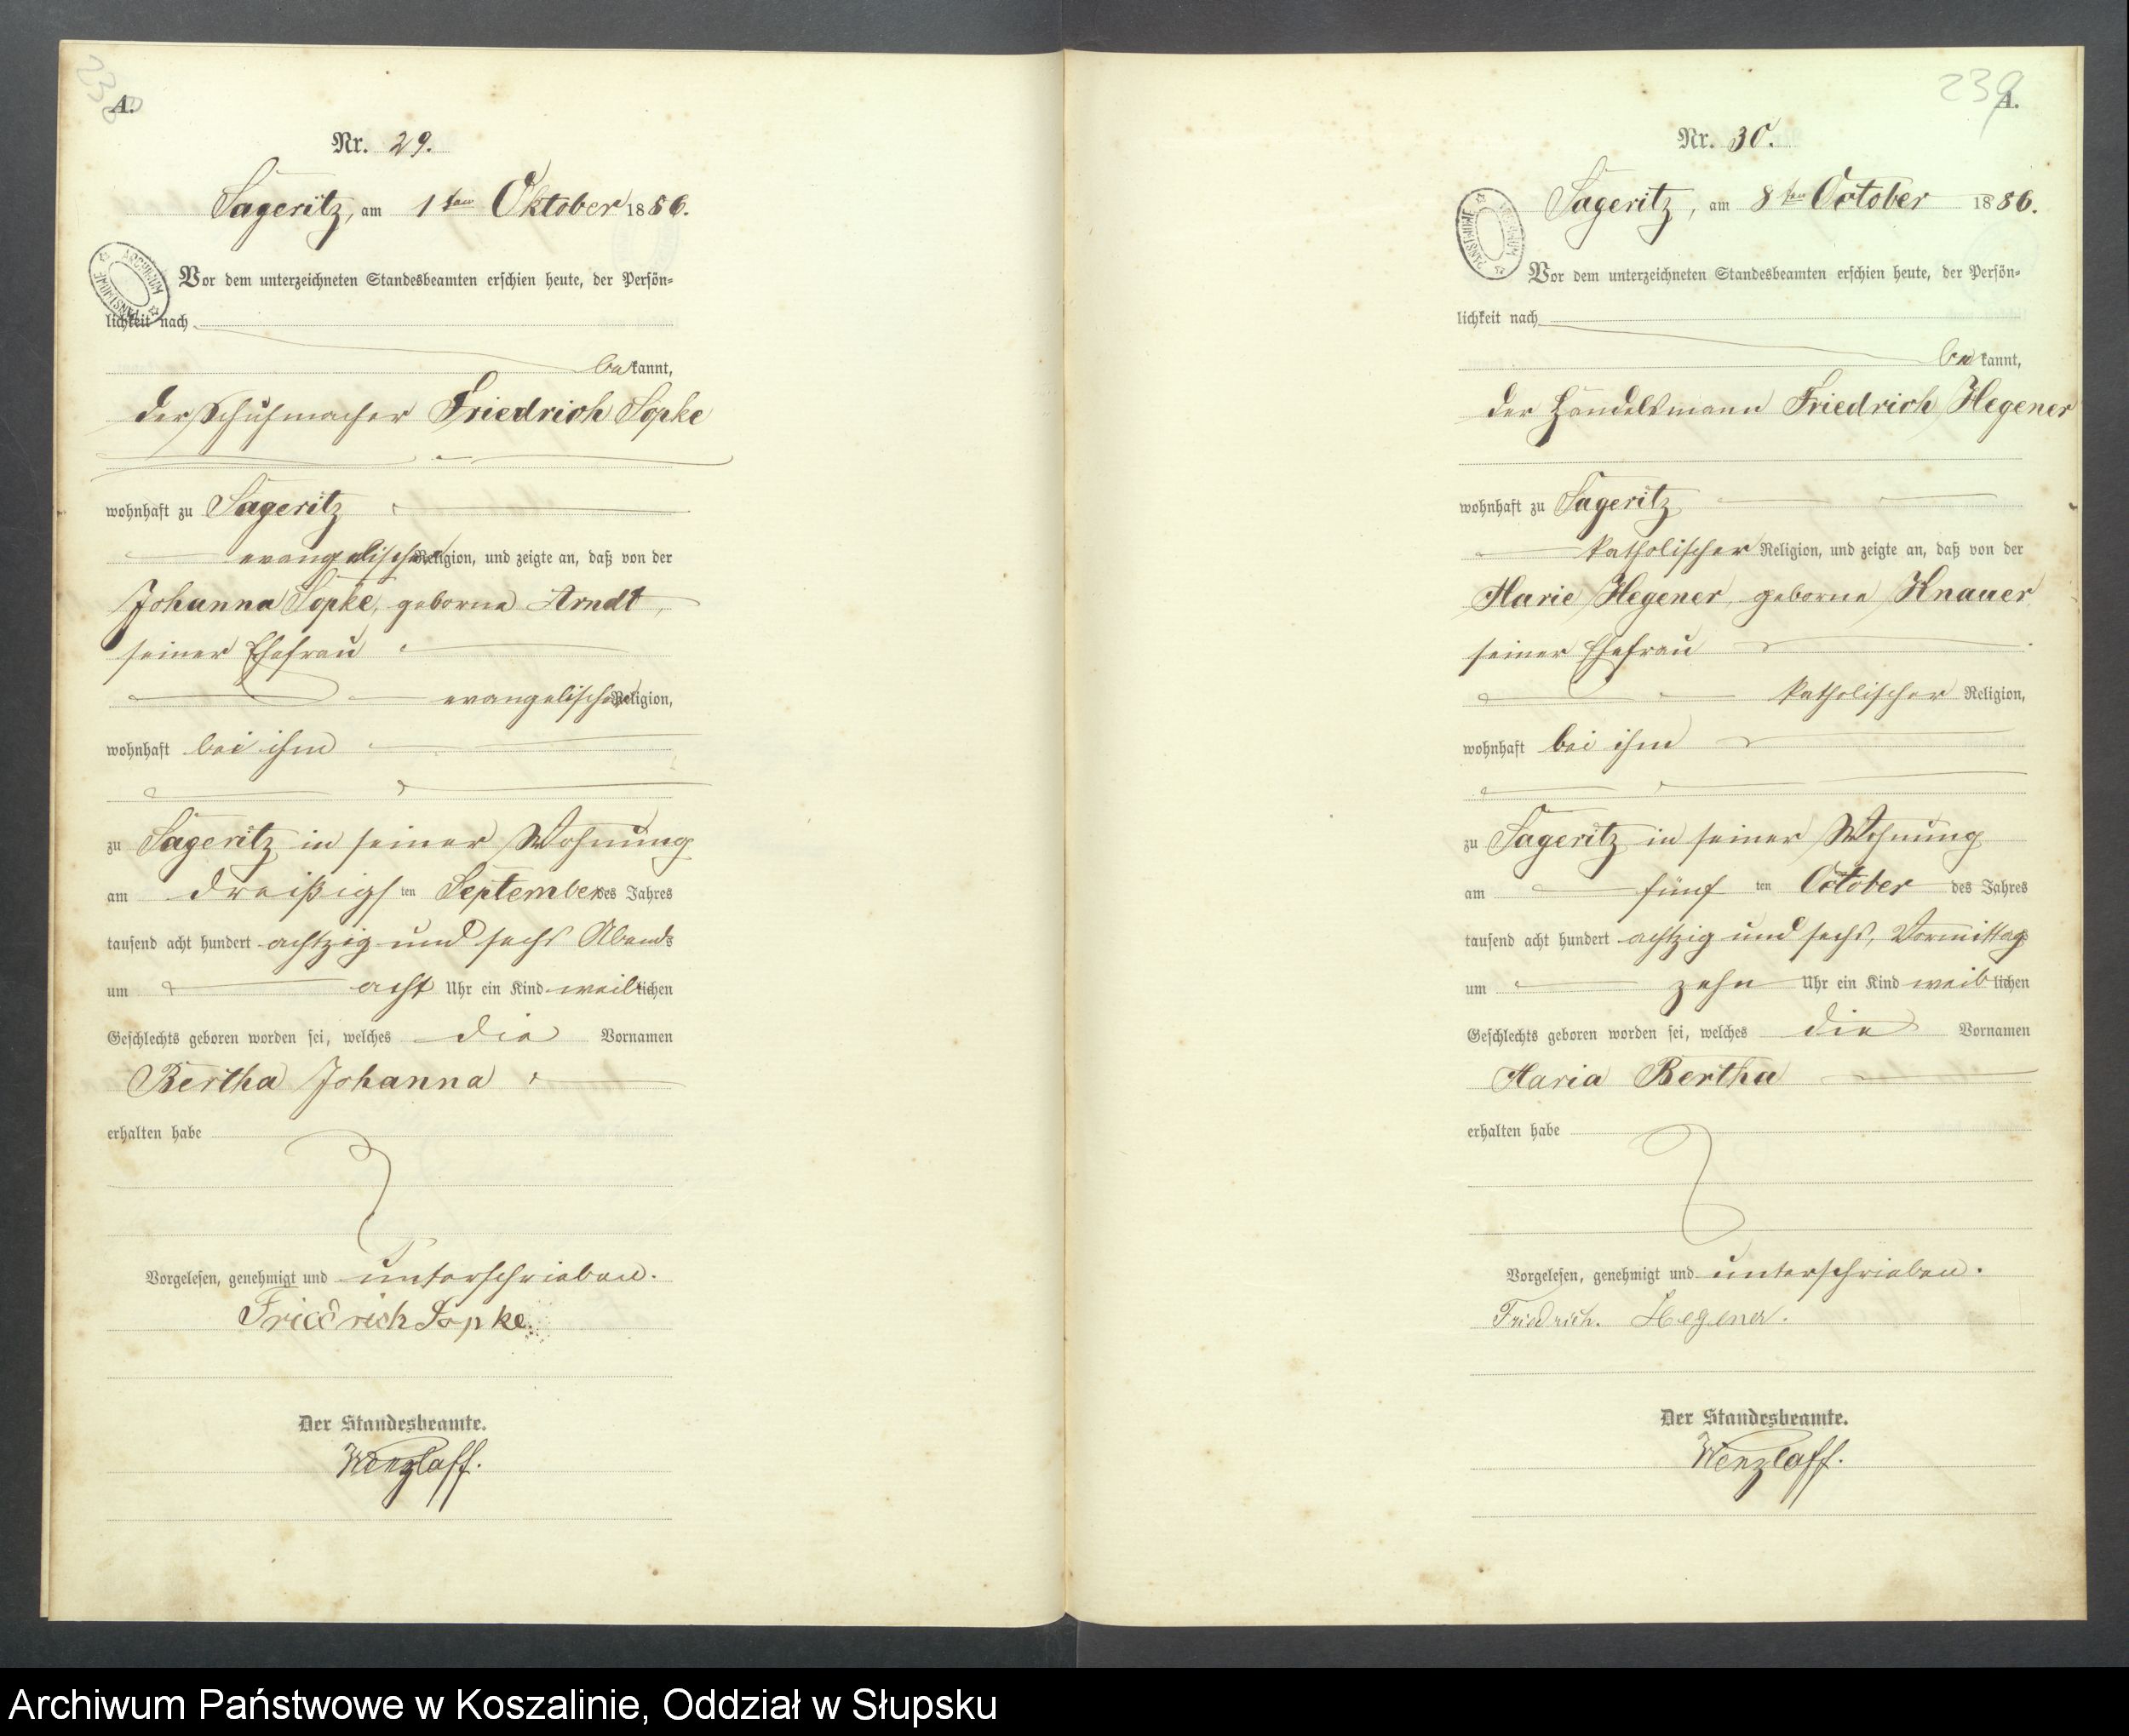 238
A.
Nr. 29.
Sageritz, am 1ten Oktober 1886.
ARCHIWUM PAŃSTWOWE
Vor dem unterzeichneten Standesbeamten erschien heute, der Persön-
lichkeit nach
bekannt,
der Schuhmacher Friedrich Sopke
wohnhaft zu Sageritz
evangelischer Religion, und zeigte an, daß von der
Johanna Sopke, geborne Arndt,
seiner Ehefrau
evangelischer Religion,
wohnhaft bei ihm
zu Sageritz in seiner Wohnung
am dreißigsten September des Jahres
tausend acht hundert achtzig und sechs Abends
um acht Uhr ein Kind weiblichen
Geschlechts geboren worden sei, welches die Vornamen
Bertha Johanna
erhalten habe
Vorgelesen, genehmigt und unterschrieben.
Friedrich Sopke.
Der Standesbeamte.
Wenzlaff.
239
A.
Nr. 30.
Sageritz, am 8ten October 1886.
ARCHIWUM PAŃSTWOWE
Vor dem unterzeichneten Standesbeamten erschien heute, der Persön-
lichkeit nach
bekannt,
der Handelsmann Friedrich Hegener
wohnhaft zu Sageritz
katholischer Religion, und zeigte an, daß von der
Marie Hegener, geborne Knauer
seiner Ehefrau
katholischer Religion,
wohnhaft bei ihm
zu Sageritz in seiner Wohnung
am fünften October des Jahres
tausend acht hundert achtzig und sechs, Vormittag
um zehn Uhr ein Kind weiblichen
Geschlechts geboren worden sei, welches die Vornamen
Maria Bertha
erhalten habe
Vorgelesen, genehmigt und unterschrieben.
Friedrich. Hegener.
Der Standesbeamte.
Wenzlaff.
Archiwum Państwowe w Koszalinie, Oddział w Słupsku